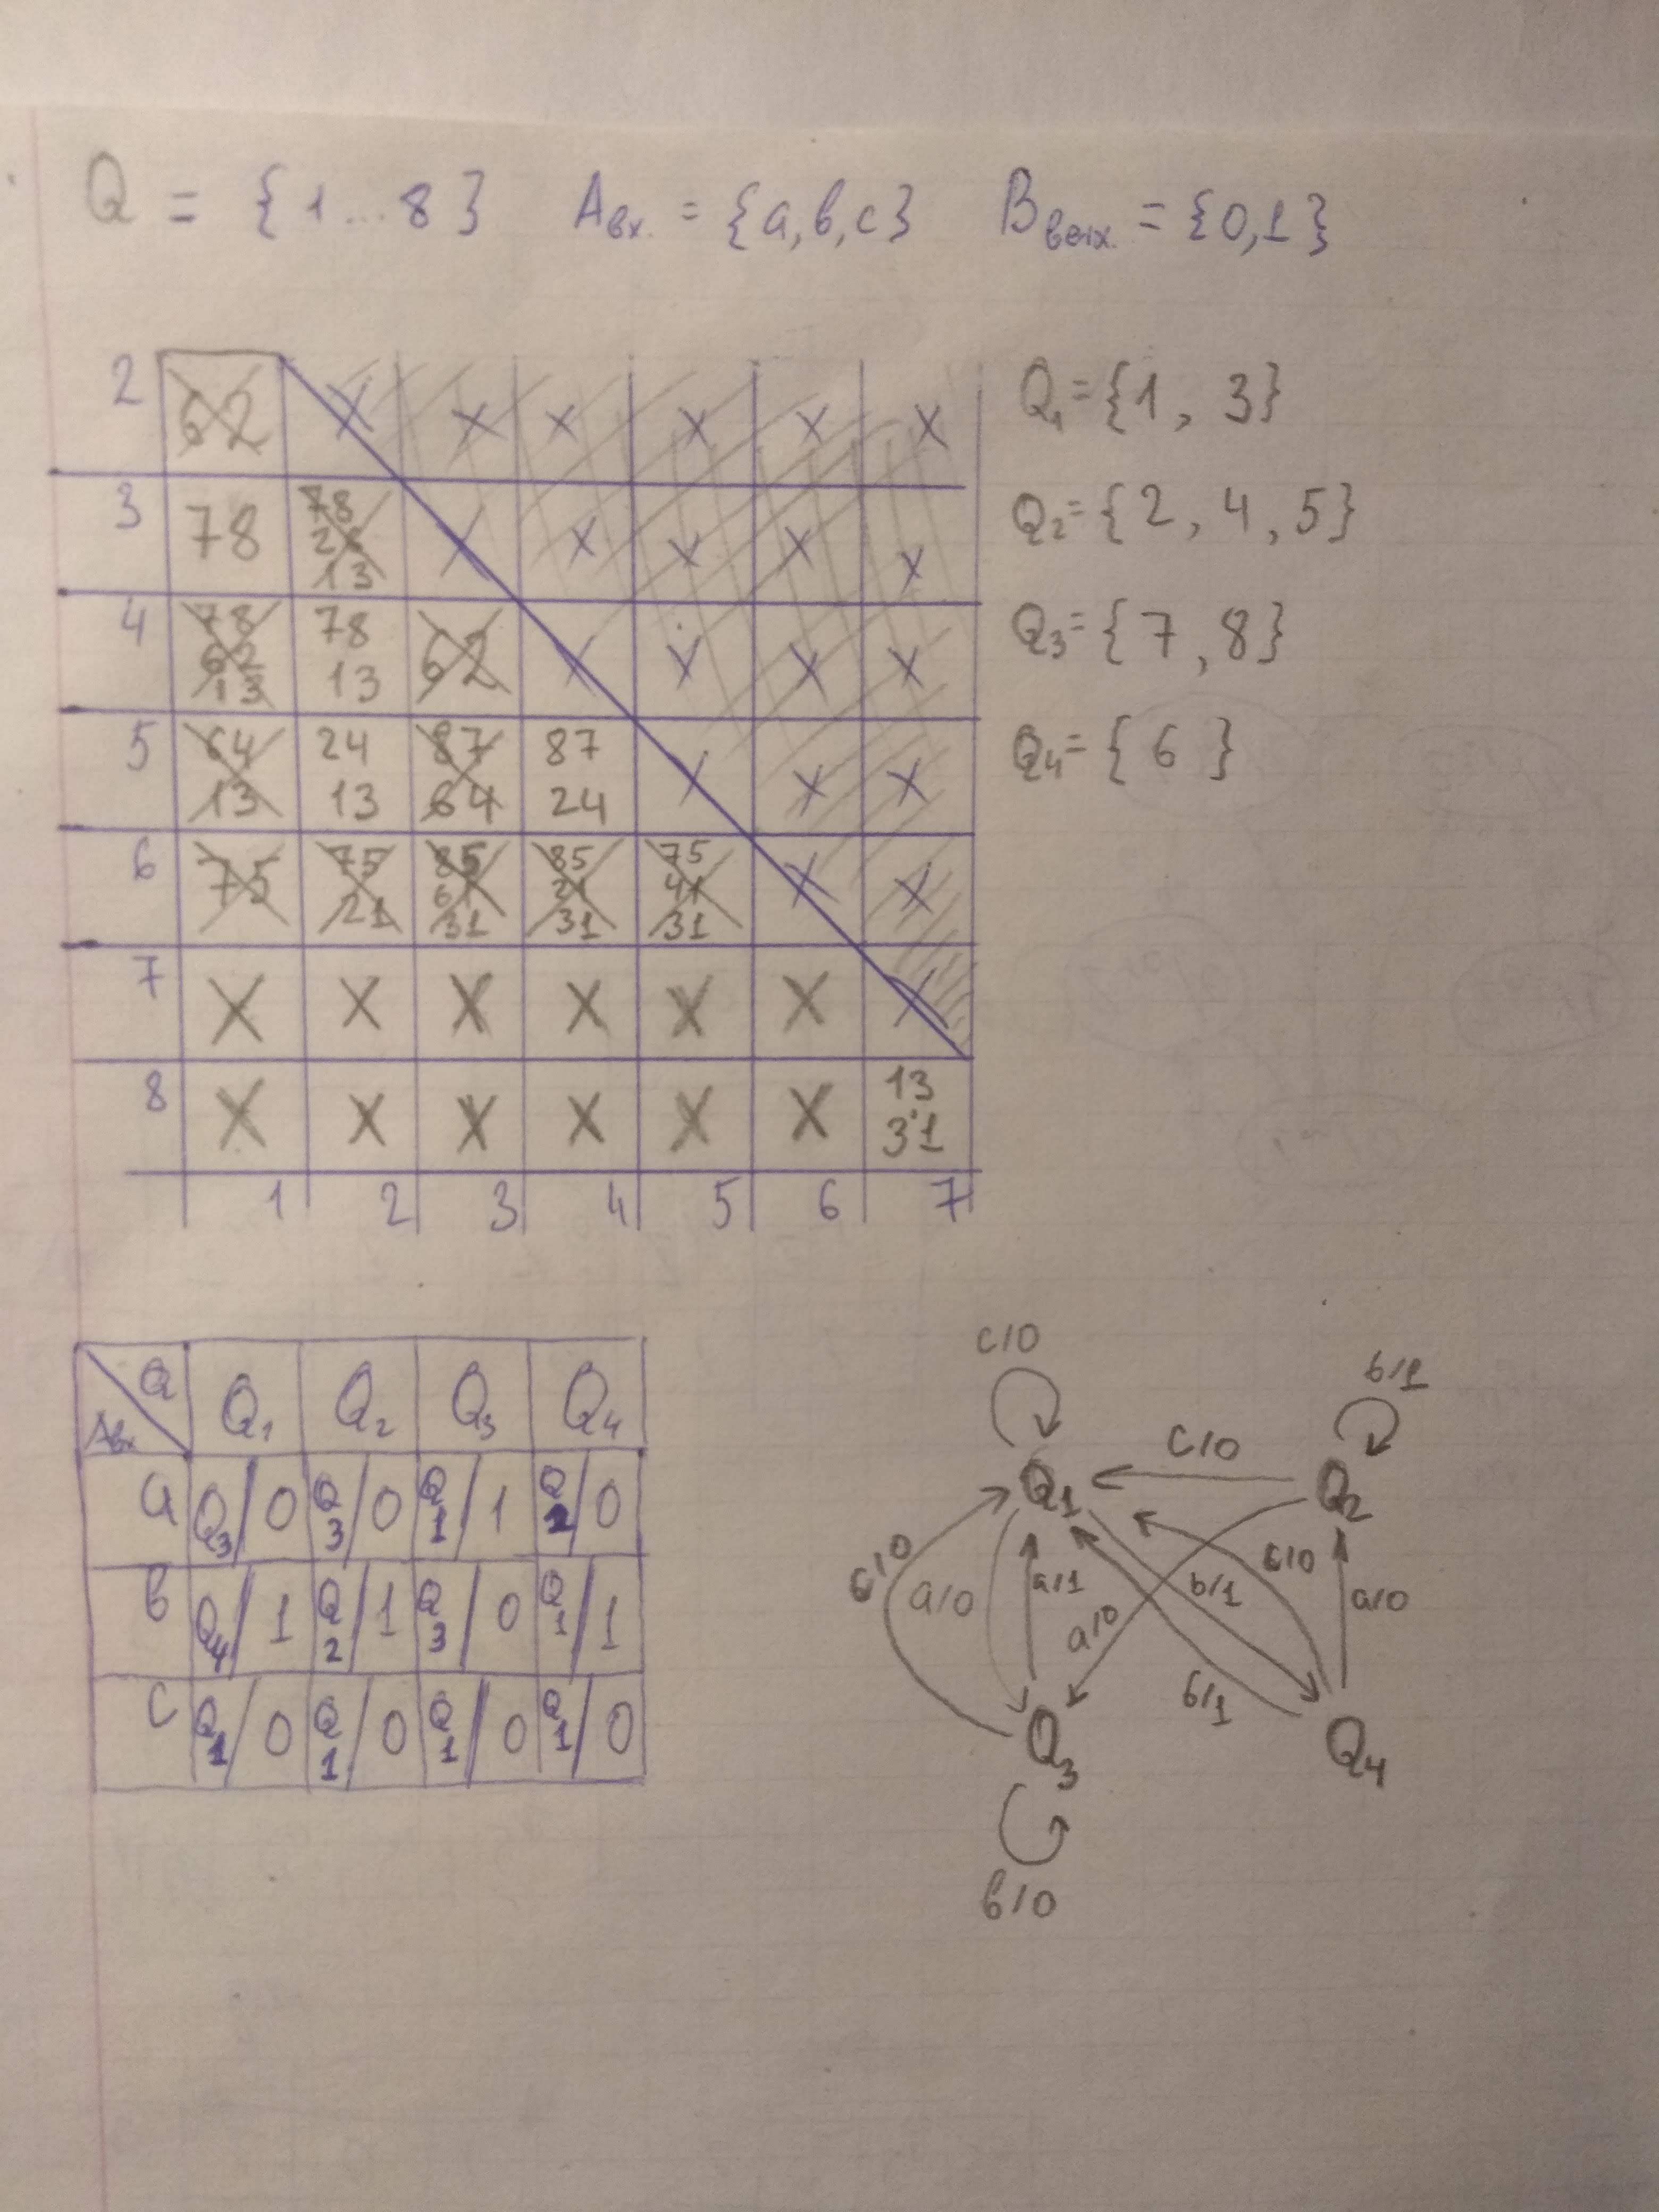 Q = {1...8} Aвх. = {a, b, c} Bвых. = {0,1}
2 62 X X X X X X
3 78 78 13 X X X X X
4 78 62 13 78 13 62 X X X X
5 64 13 24 13 87 64 87 24 X X X
6 75 75 21 85 61 31 85 21 31 75 41 31 X X
7 X X X X X X X
8 X X X X X X 13 31
1 2 3 4 5 6 7
Q1 = {1, 3}
Q2 = {2, 4, 5}
Q3 = {7, 8}
Q4 = {6}
Q Aвх Q1 Q2 Q3 Q4
a Q3/0 Q3/0 Q1/1 Q2/0
b Q4/1 Q2/1 Q3/0 Q1/1
c Q1/0 Q1/0 Q1/0 Q1/0
c/0
b/1
c/0
Q1 Q2
c/0 a/0 a/1 a/0 b/1 c/0 a/0
b/1
Q3 Q4
b/0